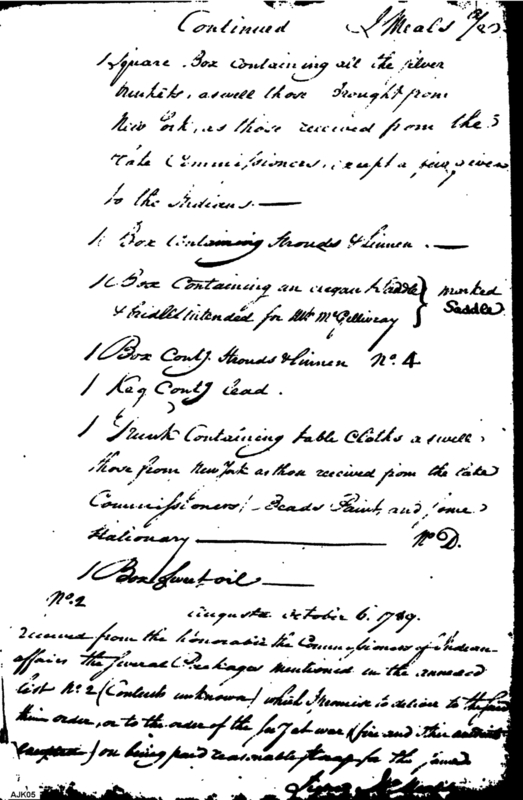 Continued J Meals
1 Square Box containing all the silver
trinkets, as well those brought from
New York, as those received from the
late Commissioners, except a few given
to the Indians. —
1 Box Containing Strouds & Linnen. —
1 Box Containing an Saddle } marked
& bridle intended for Mr McGillivray } Saddle
1 Box Contg Strouds & Linnen No. 4
1 Keg Contg lead.
1 Trunk Containing table Cloths as well
those from New York as those received from the late
Commissioners, Beads Paint, and some
Stationary — No D.
1 Box Sweet oil —
No. 2
Augusta October 6. 1789.
received from the honorable the Commissioners of Indian
affairs the several Packages mentioned in the annexed
list No. 2 (Contents unknown) which I promise to deliver to the said
their order, or to the order of the Secy at war (fire and other accidents
excepted) on being paid reasonable for the same
Signed
AJK05